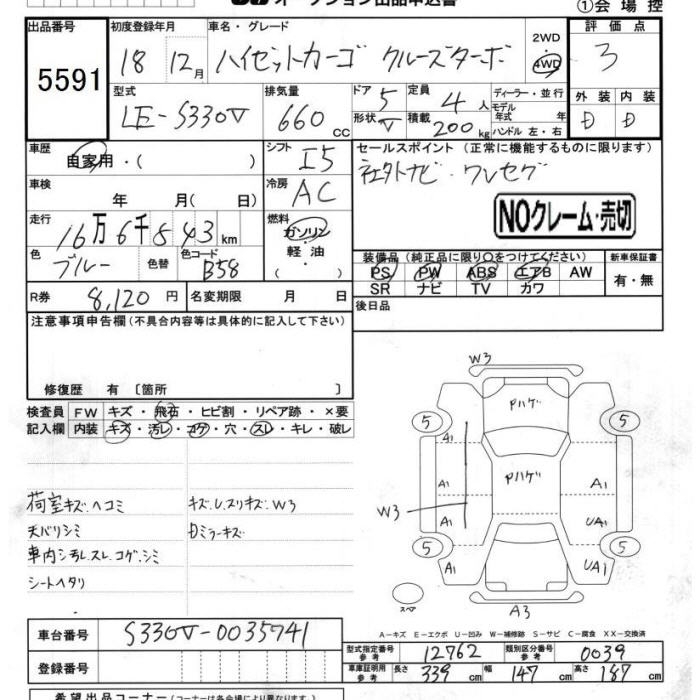 オークション出品申込書
①会場控
出品番号 初度登録年月 車名・グレード 評価点
5591 18 12月 ハイゼットカーゴ クルーズターボ 2WD 4WD 3
型式 排気量 ドア 定員 ディーラー・並行 外装 内装
LE-S330V 660cc 5 4人 モデル年式 年 D D
形状 V 積載 200kg ハンドル 左・右
車歴 シフト セールスポイント(正常に機能するものに限ります)
自家用・( ) I5 社外ナビ・ワンセグ
車検 冷房
年 月( 日) AC NOクレーム・売切
走行 燃料
16万6千843km ガソリン・軽油・
色 色替 色コード 装備品(純正品に限り○をつけてください) 新車保証書
ブルー B58 PS PW ABS エアB AW 有・無
SR ナビ TV カワ
R券 8,120円 名変期限 月 日 後日品
注意事項申告欄(不具合内容等は具体的に記入して下さい)
修復歴 有〔箇所 〕
検査員 FW キズ・飛石・ヒビ割・リペア跡・×要
記入欄 内装 キズ・汚レ・コゲ・穴・スレ・キレ・破レ
荷室キズ.ヘコミ キズ.U.スリキズ.W3
天バリシミ Dミラーキズ
車内シ汚レ.スレ.コゲ.シミ
シートヘタリ
W3
5 Pハゲ 5
A1
Pハゲ
A1 A
W3
A1 UA1
5 5
A1 UA1
スペア
A3
A-キズ E-エクボ U-凹み W-補修跡 S-サビ C-腐食 XX-交換済
車台番号 S330V-0035741
型式指定番号 参考 12762 類別区分番号 参考 0039
登録番号
車庫証明用 参考 長さ 339cm 幅 147cm 高さ 187cm
希望出品コーナー(コーナーは各会場により異なります